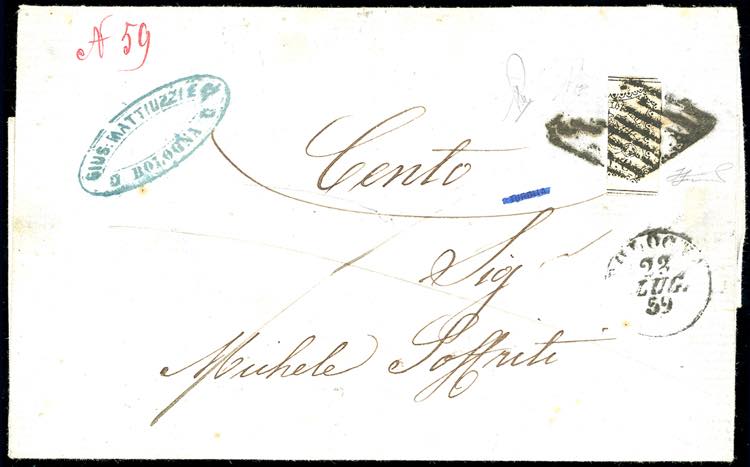 N 59
GIUS. MATTIUZZI E
BOLOGNA
Cento
Sig
Michele Soffriti
BOLOGNA
22
LUG.
59